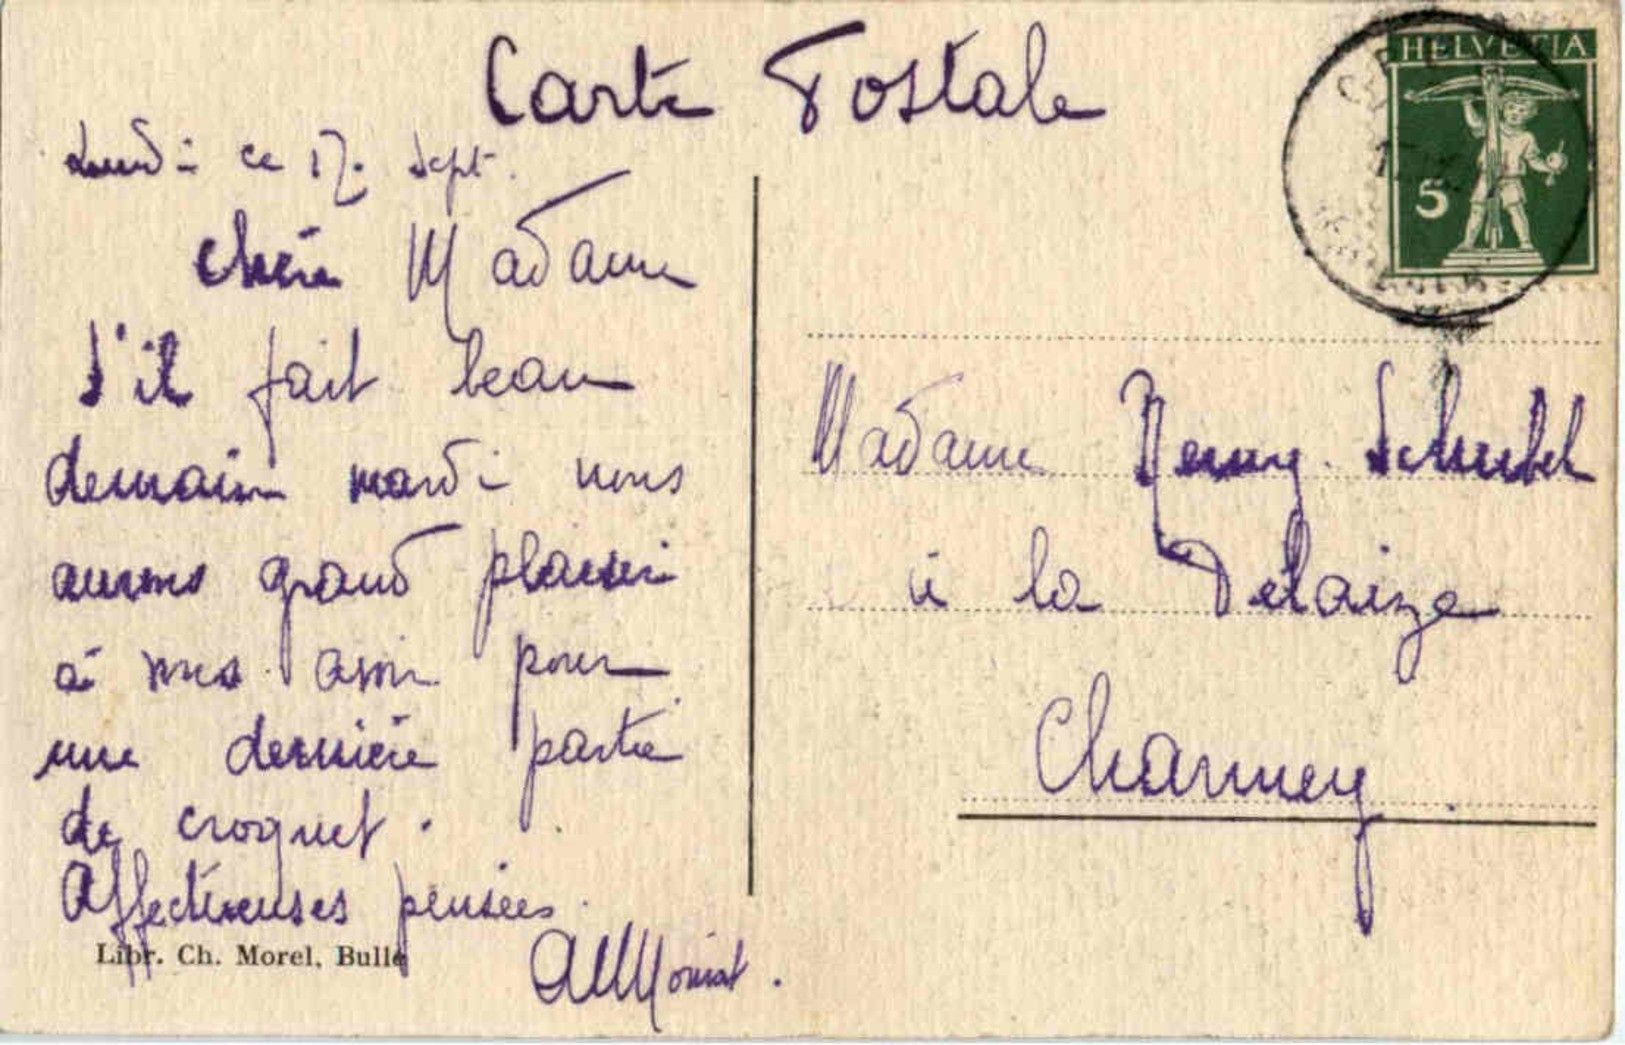 Carte Postale
HELVETIA
5
Lundi ce 17 Sept.
Chère Madame
S'il fait beau
demain mardi nous
aurons grand plaisir
à vous avoir pour
une dernière partie
de croquet.
Affectueuses pensées.
Libr. Ch. Morel, Bulle
Madame
à la
Charmey